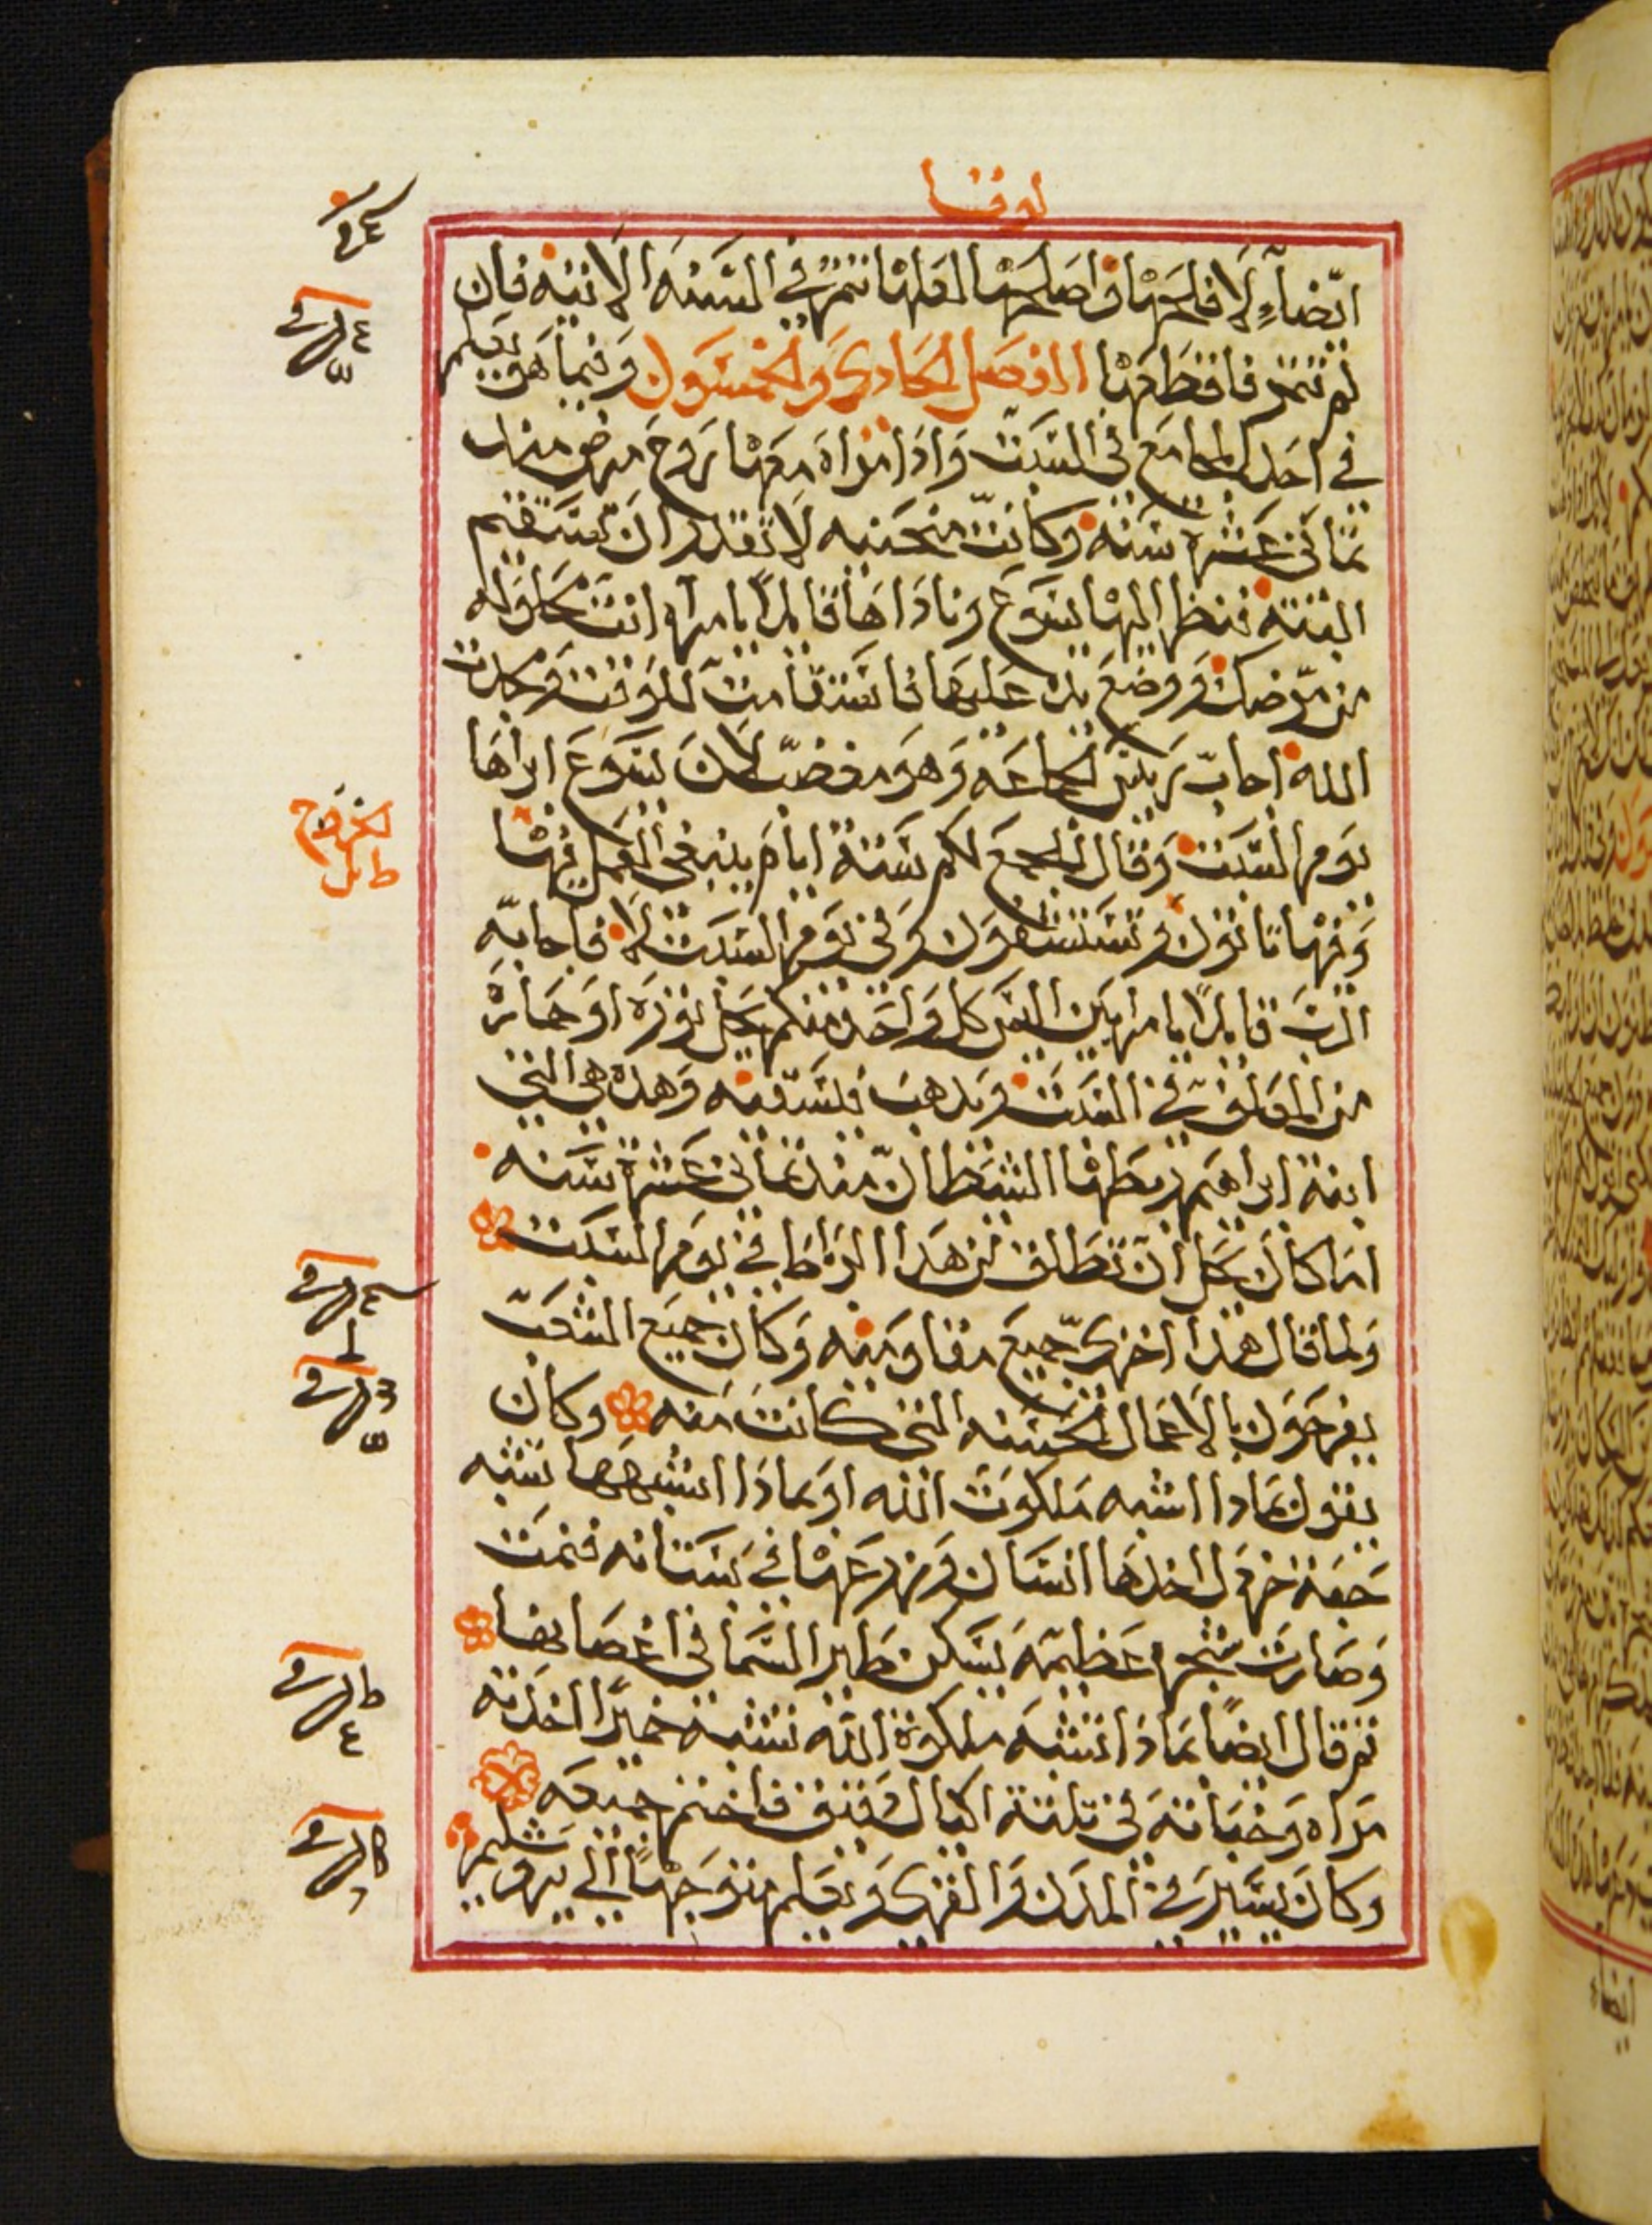 لوقا
ايضاً لافلحها واصلحها لعلها تثمر في السنه الاتيه فان
لم تثمر فاقطعها الفصل الحادي والخمسون وفيما هو يعلم
في احد المجامع في السبت واذا امراه معها روح مرض منذ
ثماني عشرة سنه وكانت منحنيه لا تقدر ان تستقيم
البته فنظر اليها يسوع وناداها قايلاً يامراه انت محلوله
من مرضك ووضع يده عليها فاستقامت للوقت ومجدت
الله اجاب ريس الجماعه وهو مغضب لان يسوع ابراها
يوم السبت وقال للجمع لكم ستة ايام ينبغي العمل فيها
وفيها تاتون وتستشفون وفي يوم السبت لا فاجابه
الرب قايلاً يا مراييين اليس كل واحد منكم يحل ثوره او حماره
من المعلف في السبت ويذهب فيسقيه وهذه هي التي
ابنة ابراهيم ربطها الشيطان منذ ثماني عشرة سنه
اما كان يحل ان تطلق من هذا الرباط في يوم السبت
ولما قال هذا اخزي جميع مقاوميه وكان جميع الشعب
يفرحون بالاعمال الحسنه التي كانت منه وكان
يقول بماذا اشبه ملكوت الله او بماذا اشبهها تشبه
حبة خردل اخذها انسان وزرعها في بستانه فنمت
وصارت شجره عظيمه يسكن طير السما في اغصانها
ثم قال ايضاً بماذا تشبه ملكوة الله تشبه خميرًا اخذته
مراه وخباته في تلتة اكيال دقيق فاختمر جميعه
وكان يسير في المدن والقري ويعلم متوجهاً الي يروشليم